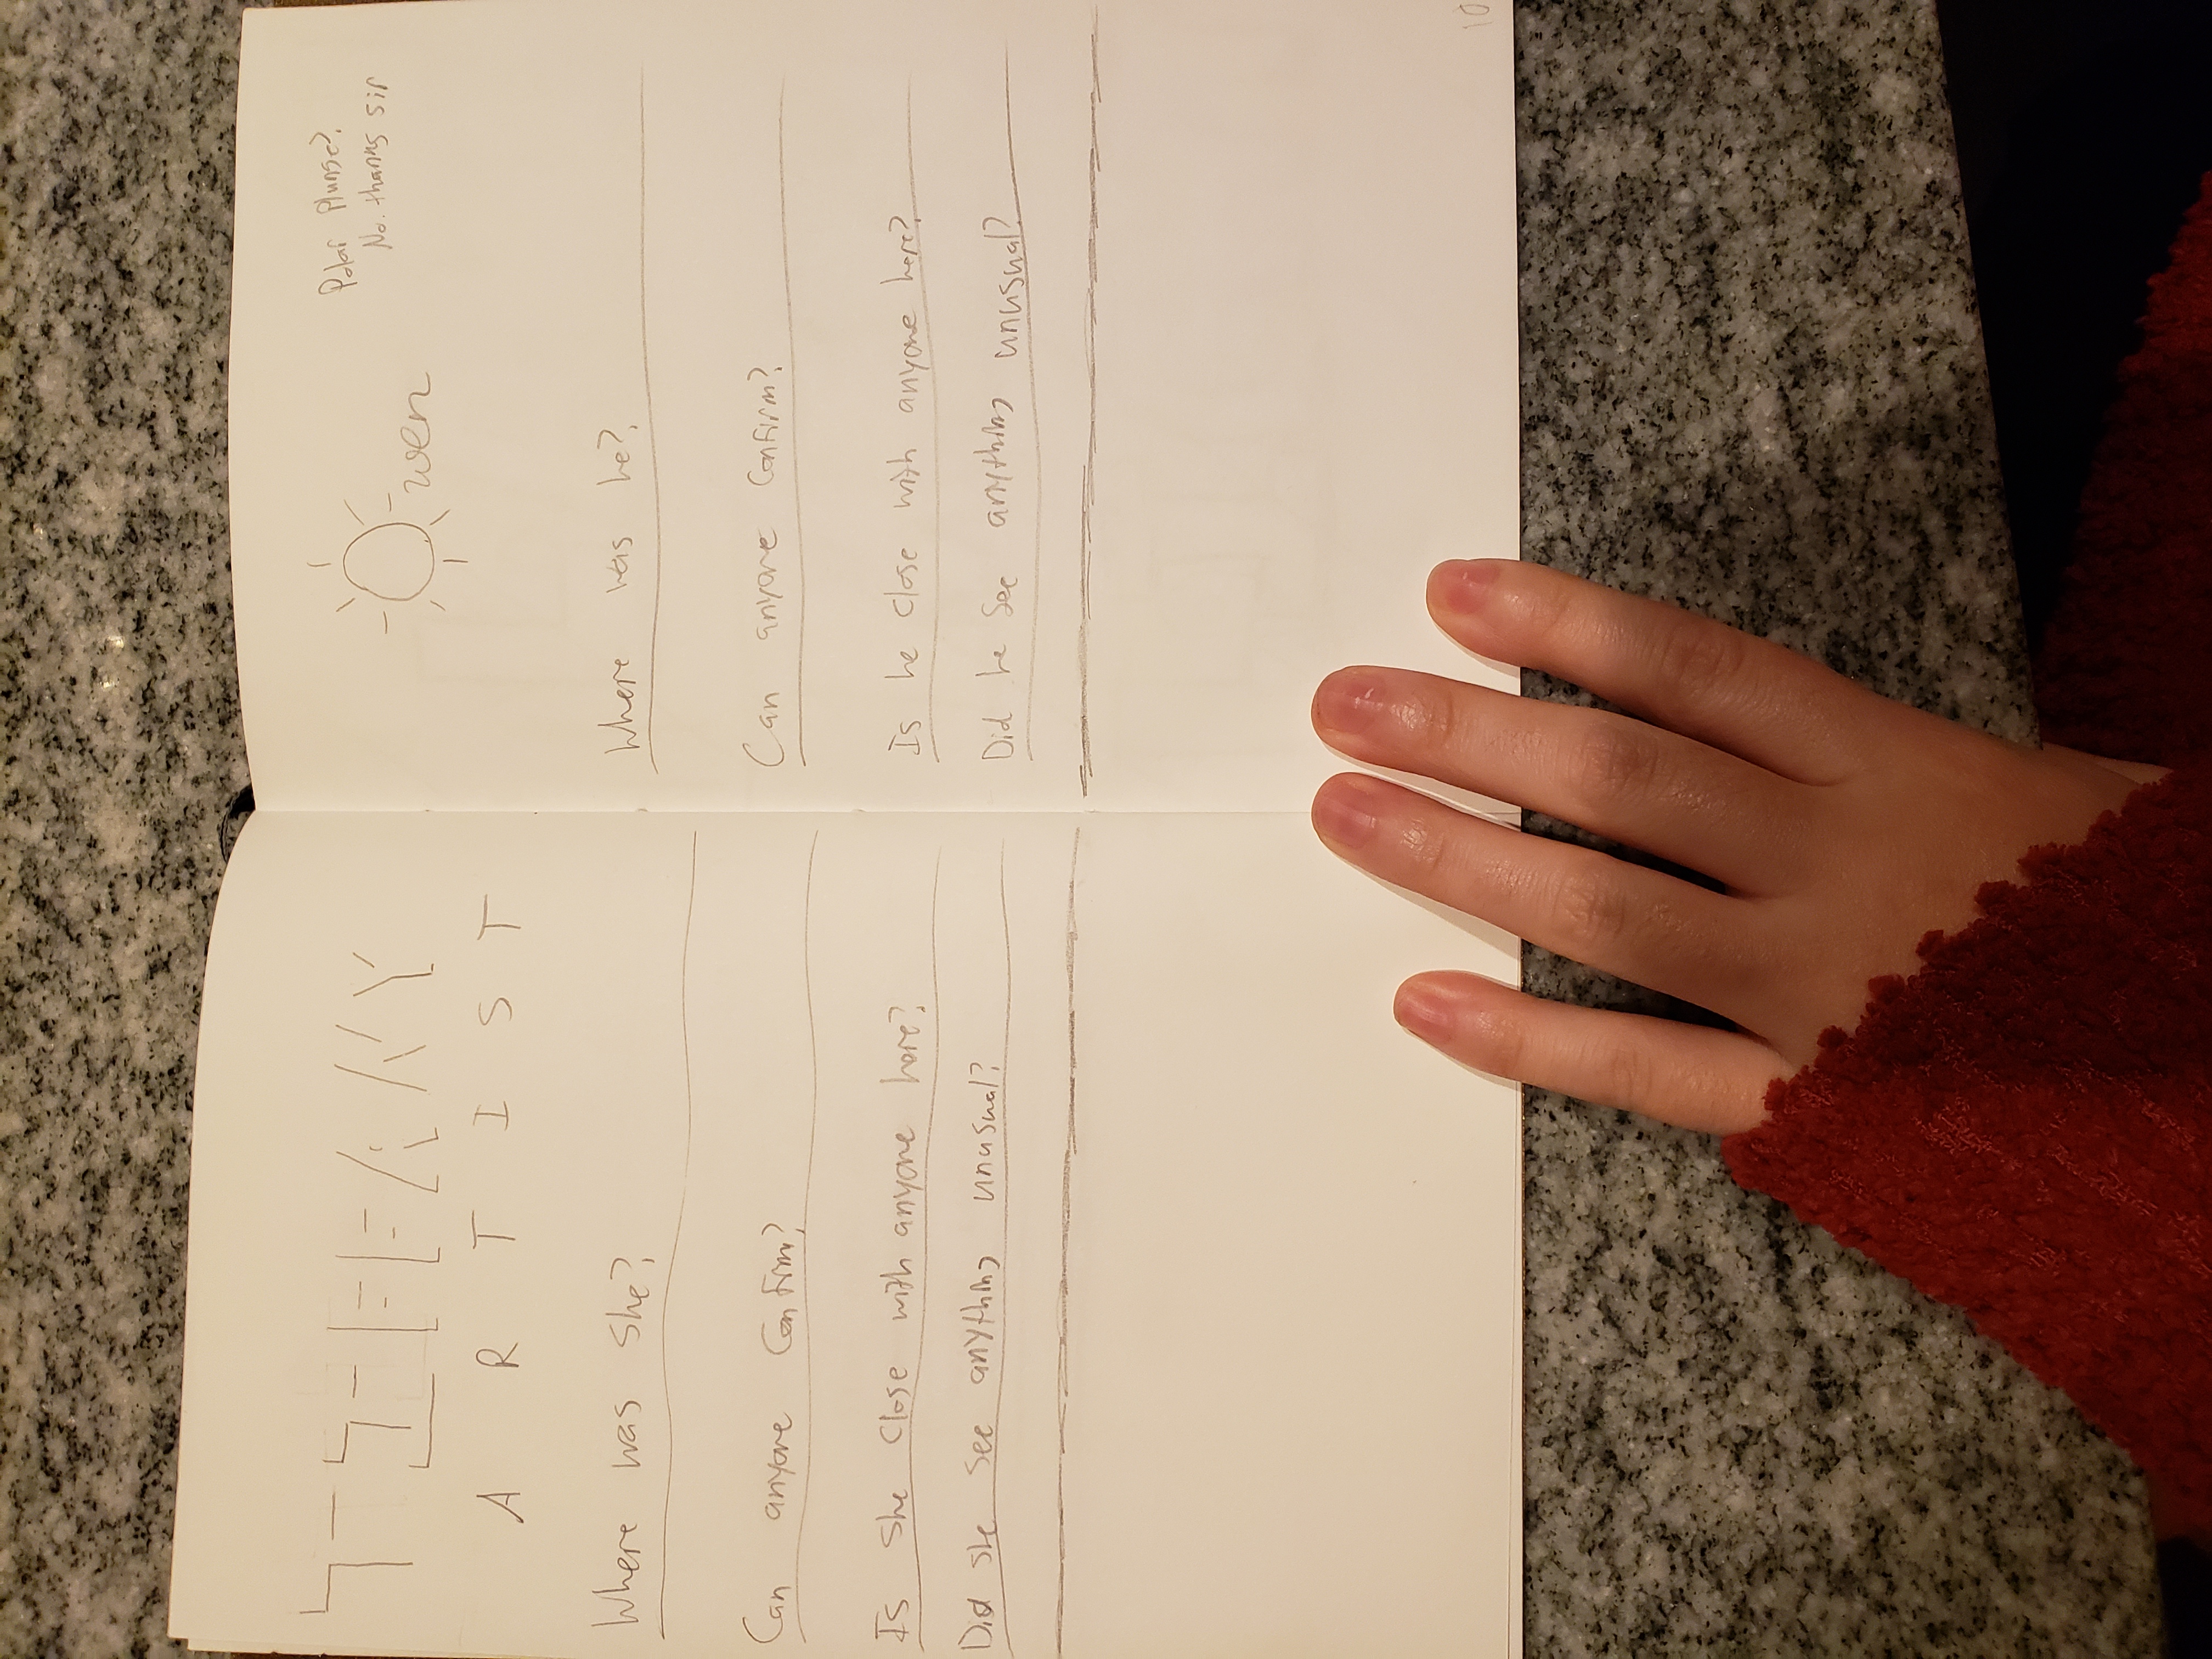 TIFFANY
ARTIST
Where was she?
Can anyone confirm?
Is she close with anyone here?
Did she see anything unusual?
Owen
Polar Plunge?
No. thanks sir
Where was he?
Can anyone confirm?
Is he close with anyone here?
Did he see anything unusual?
10